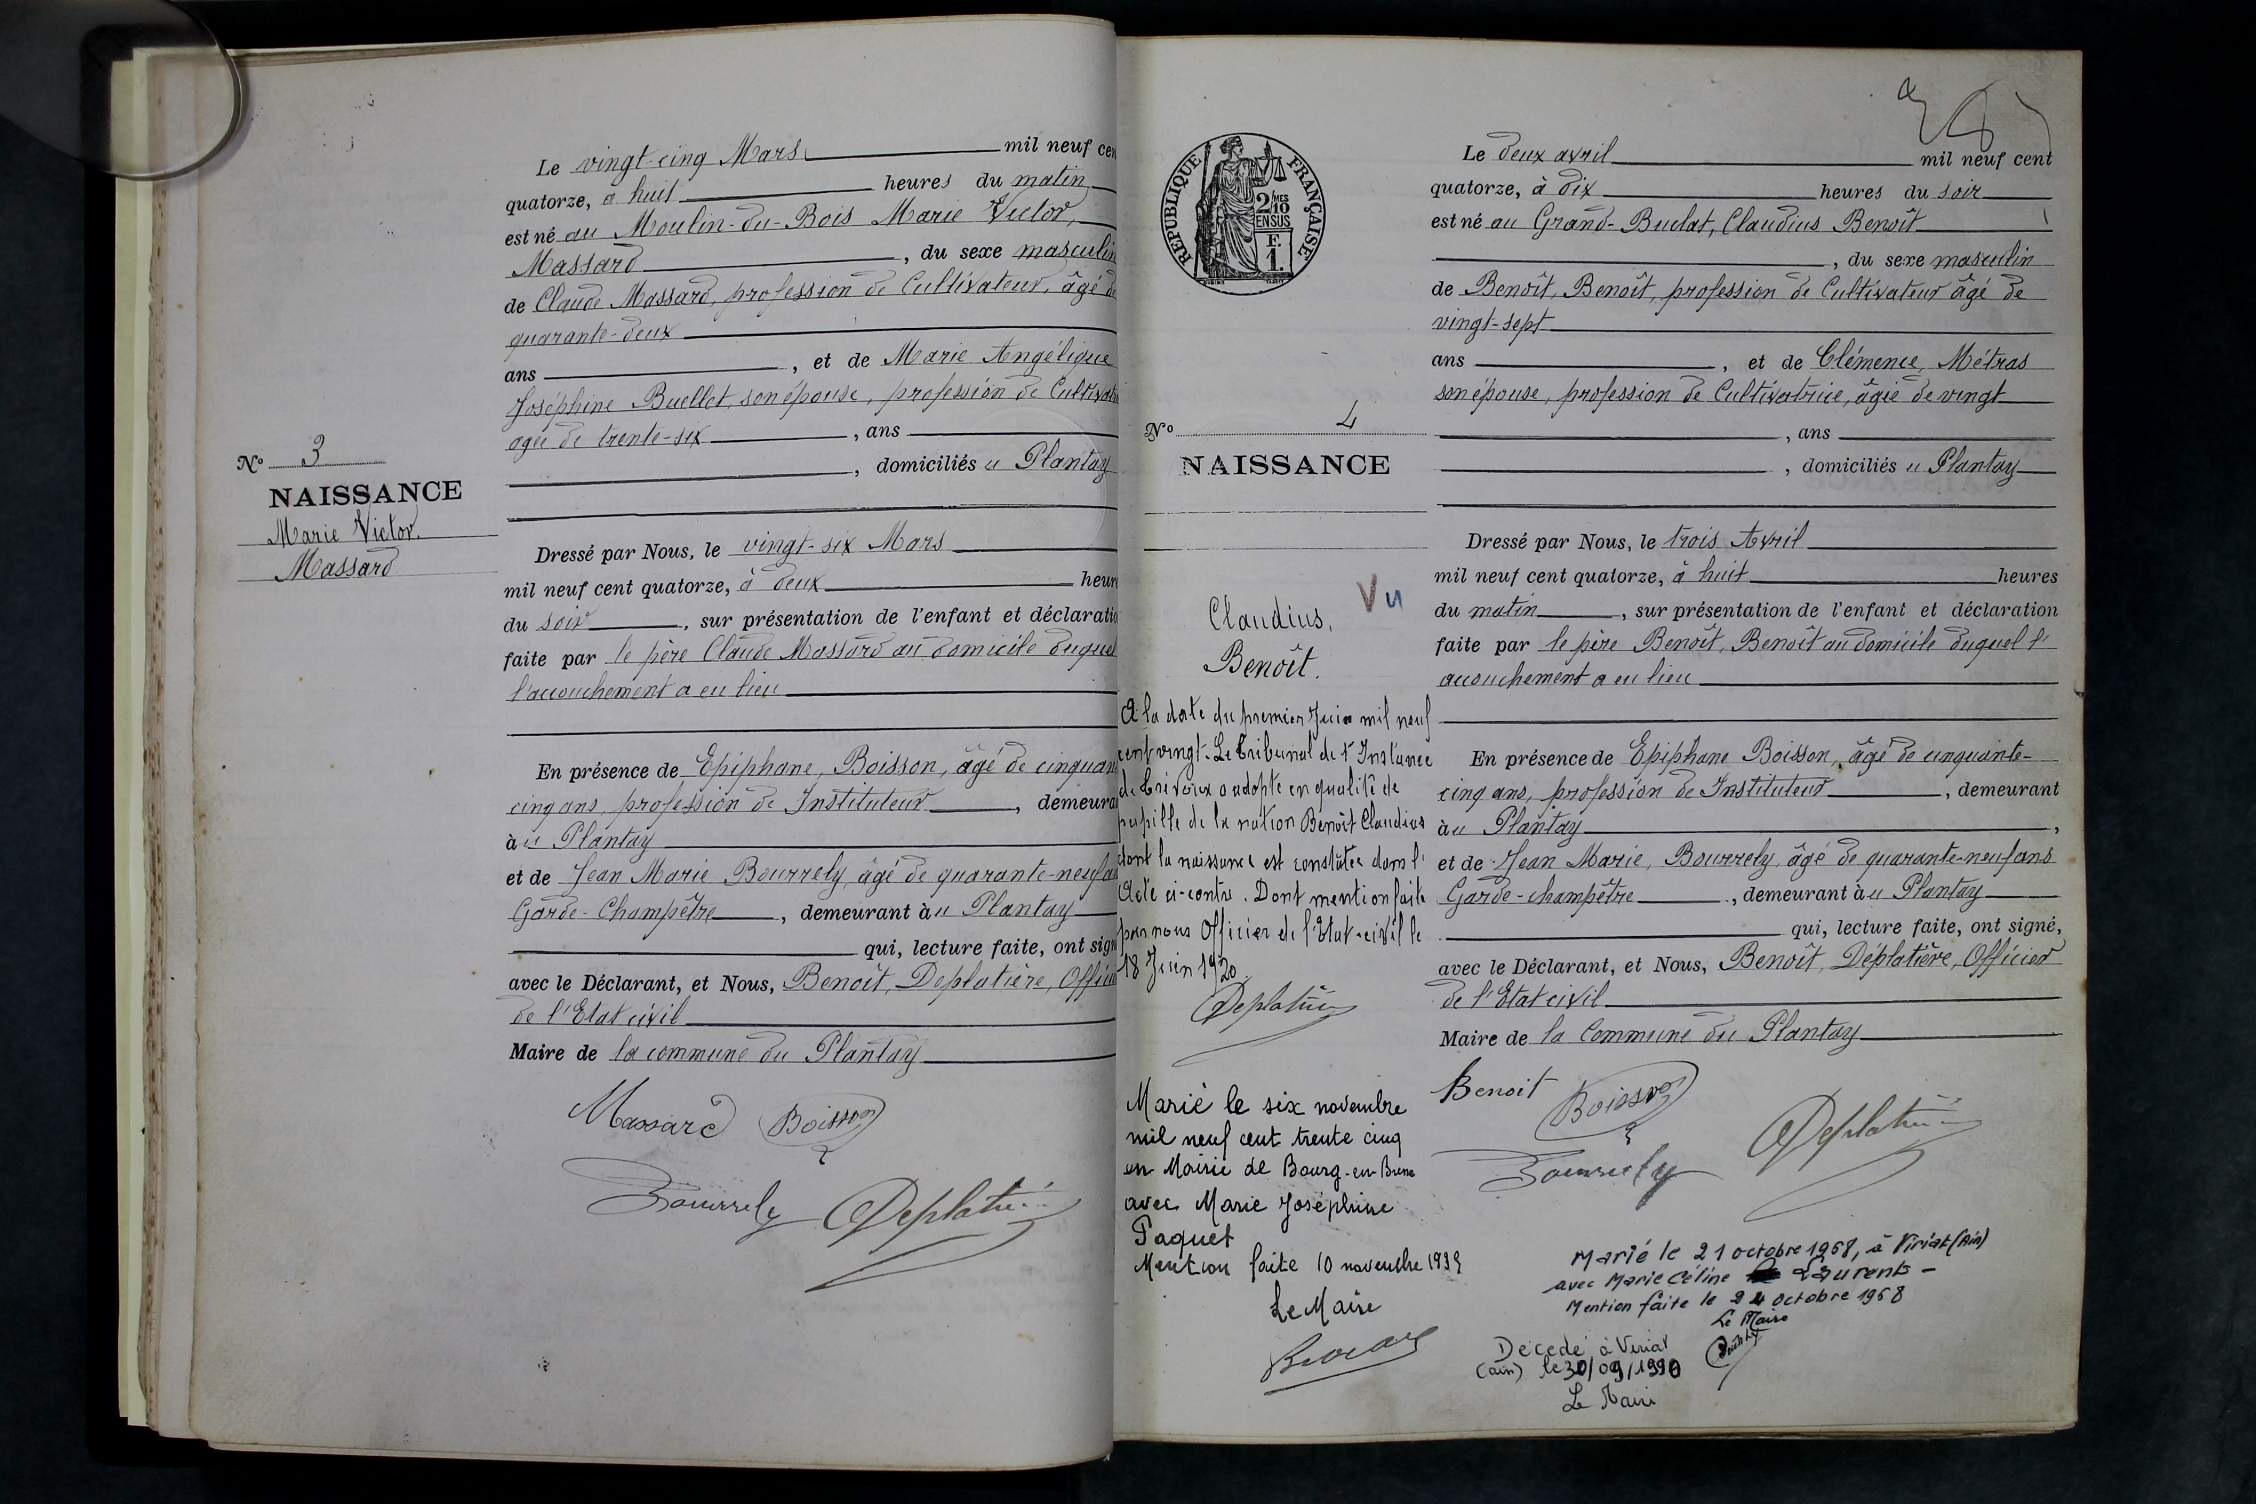 Le vingt-cinq Mars mil neuf cen
quatorze, à huit heures du matin
est né au Moulin-du-Bois Marie Victor,
Massard, du sexe masculin
de Claude Massard, profession de Cultivateur, âgé de
quarante-deux
ans, et de Marie Angélique
Joséphine Buellet, son épouse, profession de Cultivatri
agée de trente-six, ans
, domiciliés au Plantay
No 3
NAISSANCE
Marie Victor.
Massard
Dressé par Nous, le vingt-six Mars
mil neuf cent quatorze, à deux heure
du soir, sur présentation de l'enfant et déclaratio
faite par le père Claude Massard au domicile duquel
l'accouchement a eu lieu
En présence de Epiphane, Boisson, âgé de cinquan
cinq ans, profession de Instituteur, demeura
à u Plantay
et de Jean Marie Bourrely, âgé de quarante-neuf a
Garde-Champêtre, demeurant à u Plantay
qui, lecture faite, ont sign
avec le Déclarant, et Nous, Benoît, Deplatière, Offici
de l'Etat civil
Maire de la commune du Plantay
Massard Boisson
Bourrely Deplatière
REPUBLIQUE FRANÇAISE
2/MES
10
EN SUS
F.
1.
Le deux avril mil neuf cent
quatorze, à dix heures du soir
est né au Grand-Buclat, Claudius Benoît
, du sexe masculin
de Benoît, Benoît, profession de Cultivateur âgé de
vingt-sept
ans, et de Clémence, Métras
son épouse, profession de Cultivatrice, âgée de vingt
, ans
, domiciliés au Plantay
No 4
NAISSANCE
Claudius,
Benoît.
Vu
A la date du premier Juin mil neuf
cent vingt. Le Tribunal de 1e Instance
de Trévoux a adopté en qualité de
pupille de la nation Benoît Claudius
dont la naissance est constatée dans l'
Acte ci-contre. Dont mention faite
par nous Officier de l'Etat-civil le
18 Juin 1920
Deplatière
Marié le six novembre
mil neuf cent trente cinq
en Mairie de Bourg-en-Bresse
avec Marie Joséphine
Paquet
Mention faite 10 novembre 1935
Le Maire
Dressé par Nous, le trois Avril
mil neuf cent quatorze, à huit heures
du matin, sur présentation de l'enfant et déclaration
faite par le père Benoît, Benoît au domicile duquel l'
accouchement a eu lieu
En présence de Epiphane Boisson, âgé de cinquante-
cinq ans, profession de Instituteur, demeurant
à u Plantay,
et de Jean Marie, Bourrely, âgé de quarante-neuf ans
Garde-champêtre, demeurant à u Plantay
qui, lecture faite, ont signé,
avec le Déclarant, et Nous, Benoît, Déplatière, Officier
de l'Etat civil
Maire de la Commune du Plantay
Benoit Boisson
Bourrely Deplatière
Marié le 21 octobre 1968, à Viriat (Ain)
avec Marie Céline Laurent -
Mention faite le 24 octobre 1968
Le Maire
Décédé à Viriat
(ain) le 30/09/1990
Le Maire